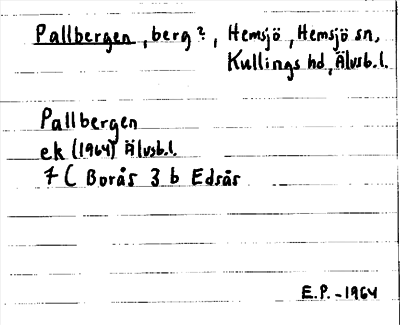 Pallbergen, berg?, Hemsjö, Hemsjö sn,
Kullings hd, Älvsb.l.
Pallbergen
ek (1964) Älvsb.l.
7 C Borås 3 b Edsås
E.P. - 1964